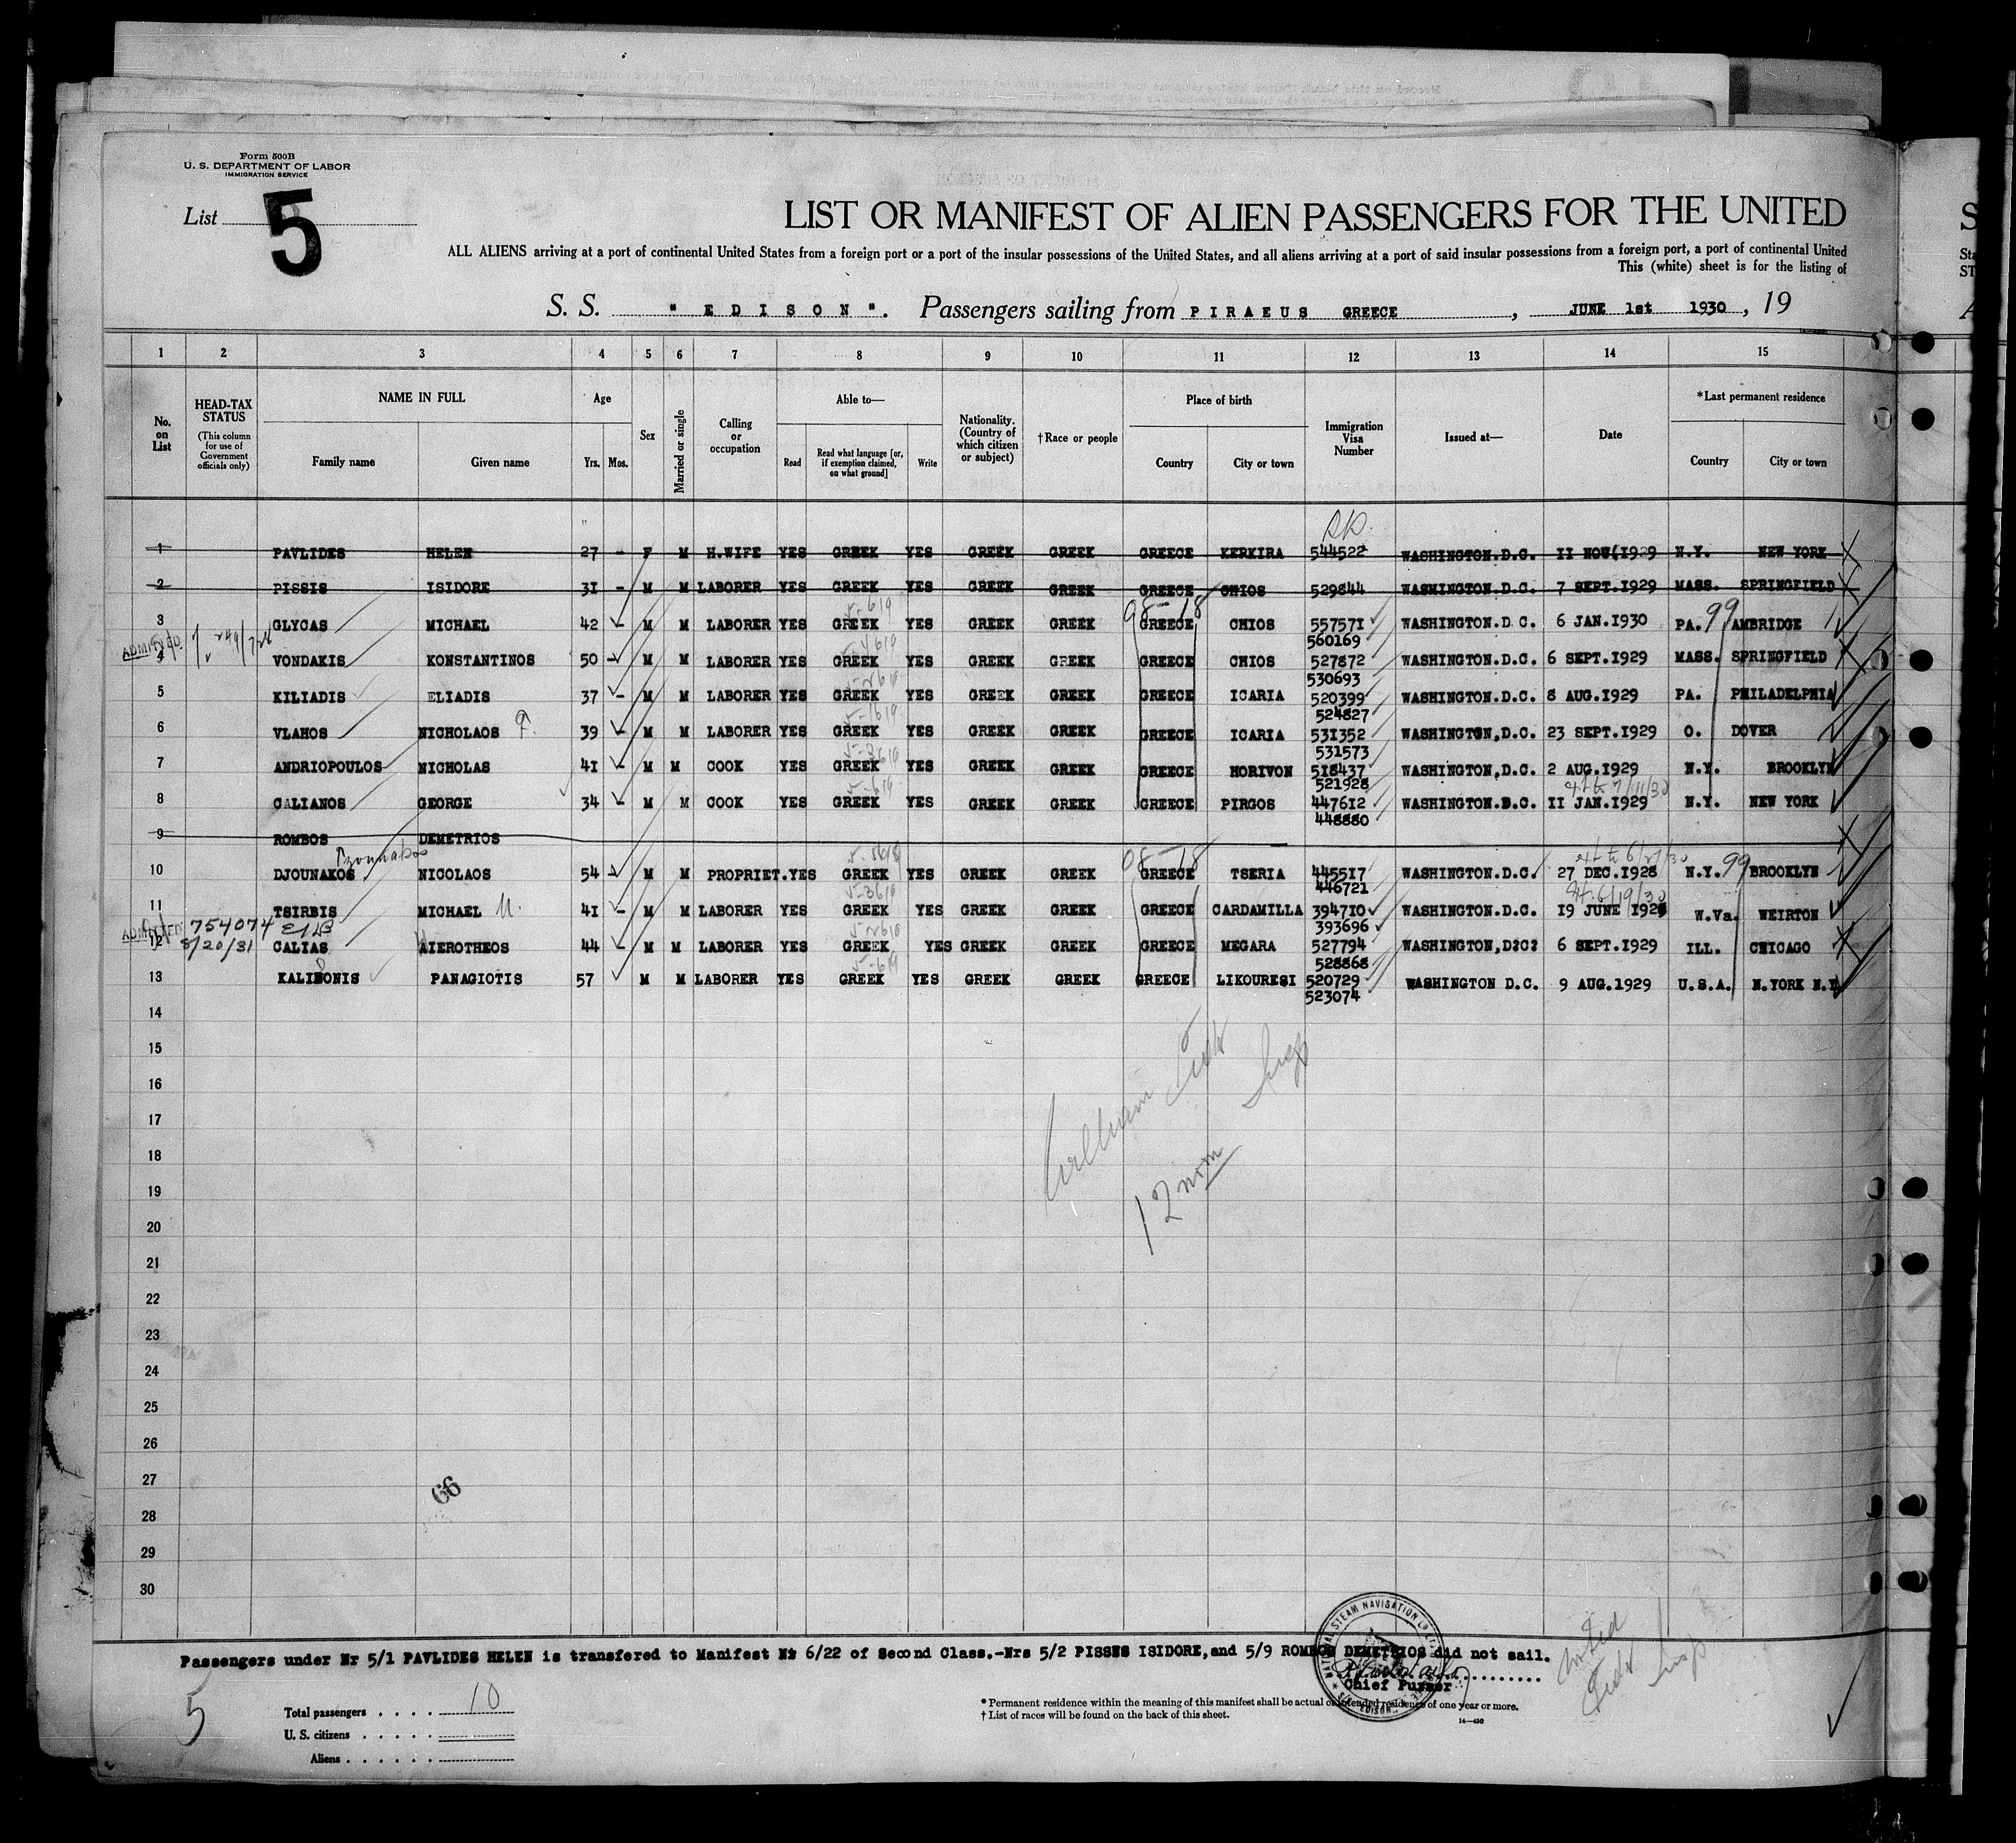 Form 500B
U. S. DEPARTMENT OF LABOR
IMMIGRATION SERVICE
List 5
LIST OR MANIFEST OF ALIEN PASSENGERS FOR THE UNITED
ALL ALIENS arriving at a port of continental United States from a foreign port or a port of the insular possessions of the United States, and all aliens arriving at a port of said insular possessions from a foreign port, a port of continental United
This (white) sheet is for the listing of
S. S. " E D I S O N ". Passengers sailing from P I R A E U S GREECE , JUNE 1st 1930 , 19
1 2 3 4 5 6 7 8 9 10 11 12 13 14 15
No. on List
HEAD-TAX STATUS
(This column for use of Government officials only)
NAME IN FULL
Family name Given name
Age
Yrs. Mos.
Sex
Married or single
Calling or occupation
Able to—
Read
Read what language [or, if exemption claimed, on what ground]
Write
Nationality. (Country of which citizen or subject)
†Race or people
Place of birth
Country City or town
Immigration Visa Number
Issued at—
Date
*Last permanent residence
Country City or town
1 PAVLIDES HELEN 27 - F M H.WIFE YES GREEK YES GREEK GREEK GREECE KERKIRA 544522 WASHINGTON.D.C. II NOV.I929 N.Y. NEW YORK
2 PISSIS ISIDORE 3I - M M LABORER YES GREEK YES GREEK GREEK GREECE CHIOS 529844 WASHINGTON.D.C. 7 SEPT.I929 MASS. SPRINGFIELD
98-18
3 GLYCAS MICHAEL 42 - M M LABORER YES GREEK YES GREEK GREEK GREECE CHIOS 55757I WASHINGTON.D C. 6 JAN.I930 PA. 99 AMBRIDGE
560169
ADMITTED
4 VONDAKIS KONSTANTINOS 50 - M M LABORER YES GREEK YES GREEK GREEK GREECE CHIOS 527872 WASHINGTON.D.C. 6 SEPT.I929 MASS. SPRINGFIELD
530693
5 KILIADIS ELIADIS 37 - M M LABORER YES GREEK YES GREEK GREEK GREECE ICARIA 520399 WASHINGTON.D.C. 8 AUG.I929 PA. PHILADELPHIA
524827
6 VLAHOS NICHOLAOS 39 - M M LABORER YES GREEK YES GREEK GREEK GREECE ICARIA 53I352 WASHINGTON,D.C. 23 SEPT.I929 O. DOVER
531573
7 ANDRIOPOULOS NICHOLAS 4I - M M COOK YES GREEK YES GREEK GREEK GREECE HORIVON 518437 WASHINGTON,D.C. 2 AUG.I929 N.Y. BROOKLYN
521928
8 CALIANOS GEORGE 34 - M M COOK YES GREEK YES GREEK GREEK GREECE PIRGOS 4476I2 WASHINGTON.D.C. II JAN.I929 N.Y. NEW YORK
448880
9 ROMBOS DEMETRIOS
10 DJOUNAKOS NICOLAOS 54 - M M PROPRIET.YES GREEK YES GREEK GREEK GREECE TSERIA 4455I7 WASHINGTON.D.C. 27 DEC.I928 N.Y. 99 BROOKLYN
446721
11 TSIRBIS MICHAEL 4I - M M LABORER YES GREEK YES GREEK GREEK GREECE CARDAMILLA 394710 WASHINGTON.D.C. I9 JUNE I928 W.Va. WEIRTON
393696
754074
8/20/31
12 CALIAS AIEROTHEOS 44 - M M LABORER YES GREEK YES GREEK GREEK GREECE MEGARA 527794 WASHINGTON,D?C? 6 SEPT.I929 ILL. CHICAGO
528868
13 PANAGIOTIS 57 M M LABORER YES GREEK YES GREEK GREEK GREECE LIKOURESI 520729 WASHINGTON D.C. 9 AUG.1929 U.S.A. N.YORK N.Y
523074
14
15
16
17
18
19
20
21
22
23
24
25
26
27
28
29
30
William
12
66
Passengers under Nr 5/1 PAVLIDES HELEN is transfered to Manifest Nt 6/22 of Second Class.-Nrs 5/2 PISSES ISIDORE,and 5/9 ROMBOS DEMETRIOS did not sail.
Chief Purser
5
Total passengers 10
U. S. citizens
Aliens
* Permanent residence within the meaning of this manifest shall be actual or intended residence of one year or more.
† List of races will be found on the back of this sheet.
14—430